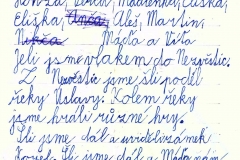 Honza, Verun, Madlenka, Eliška,
Eliška, Anča, Aleš, Martin,
Nikča Máďa a Víťa
Jeli jsme vlakem do Nezvěstic.
Z Nezvěstic jsme šli podél
řeky Úslavy. Kolem řeky
jsme hráli různé hry.
Šli jsme dál a uviděli zámek
Šli jsme dál a Máďa nám